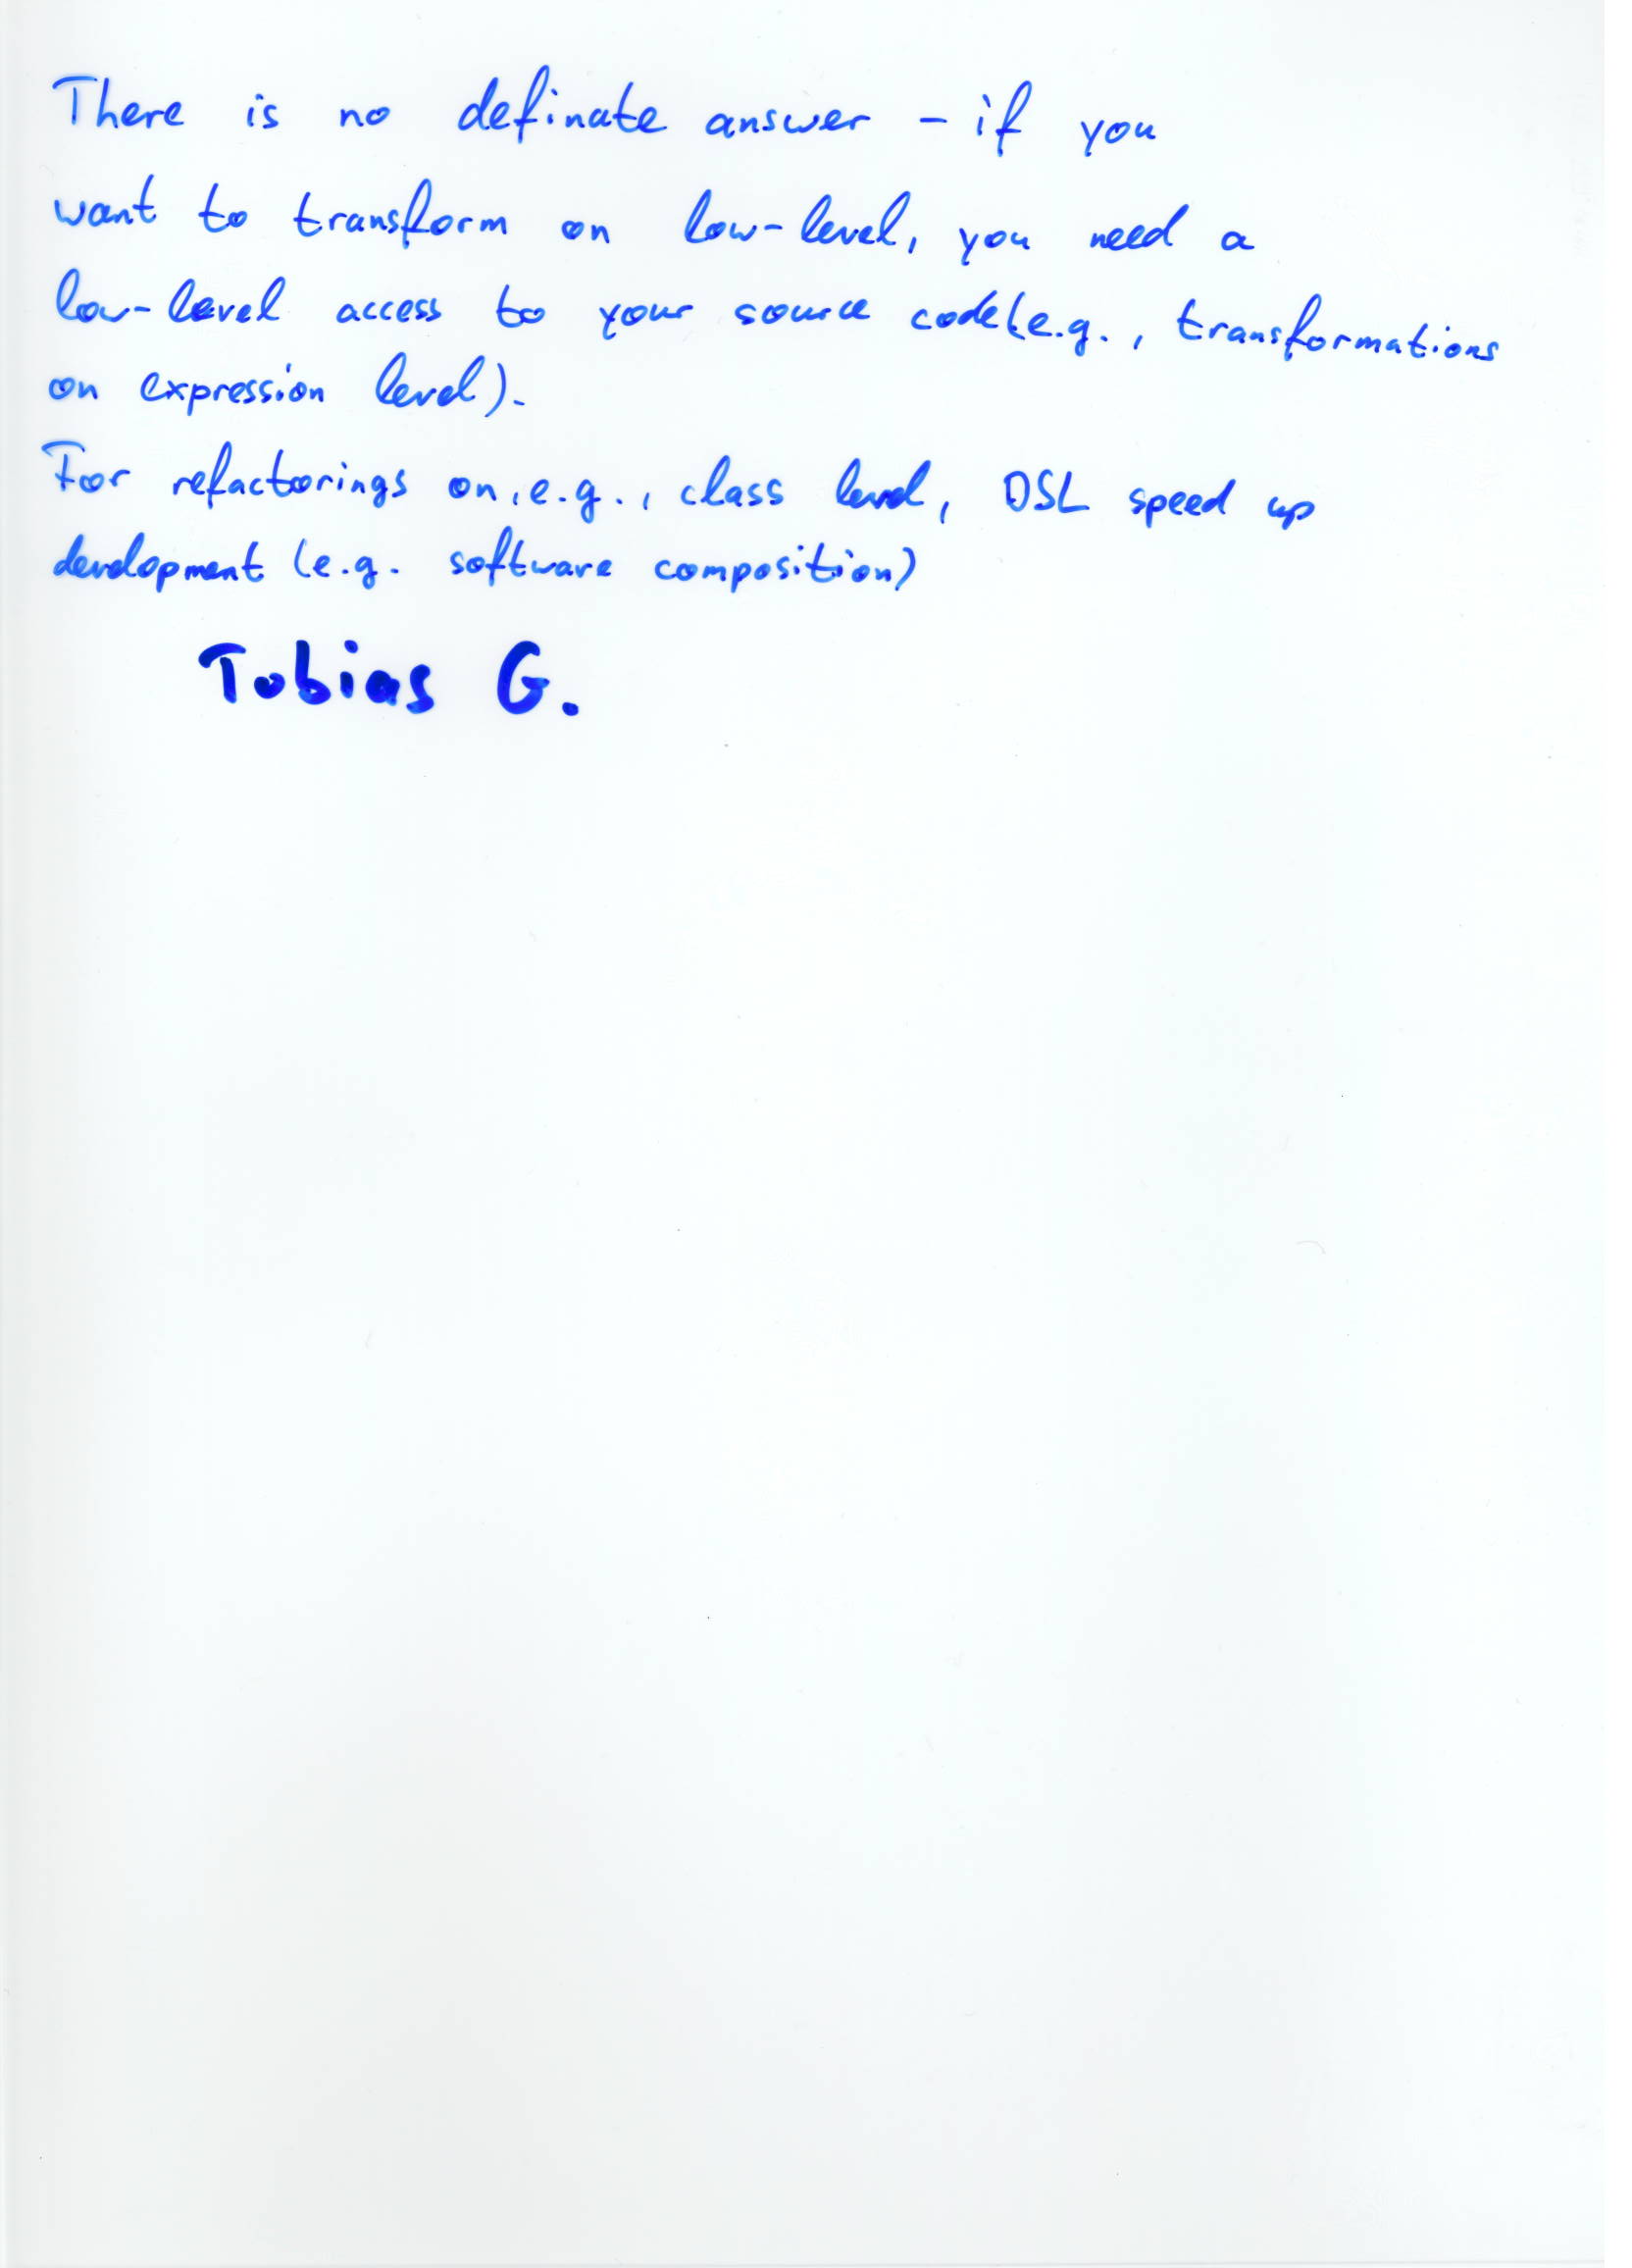 There is no definate answer - if you
want to transform on low-level, you need a
low-level access to your source code (e.g., transformations
on expression level).
For refactorings on, e.g., class level, DSL speed up
development (e.g. software composition)
Tobias G.